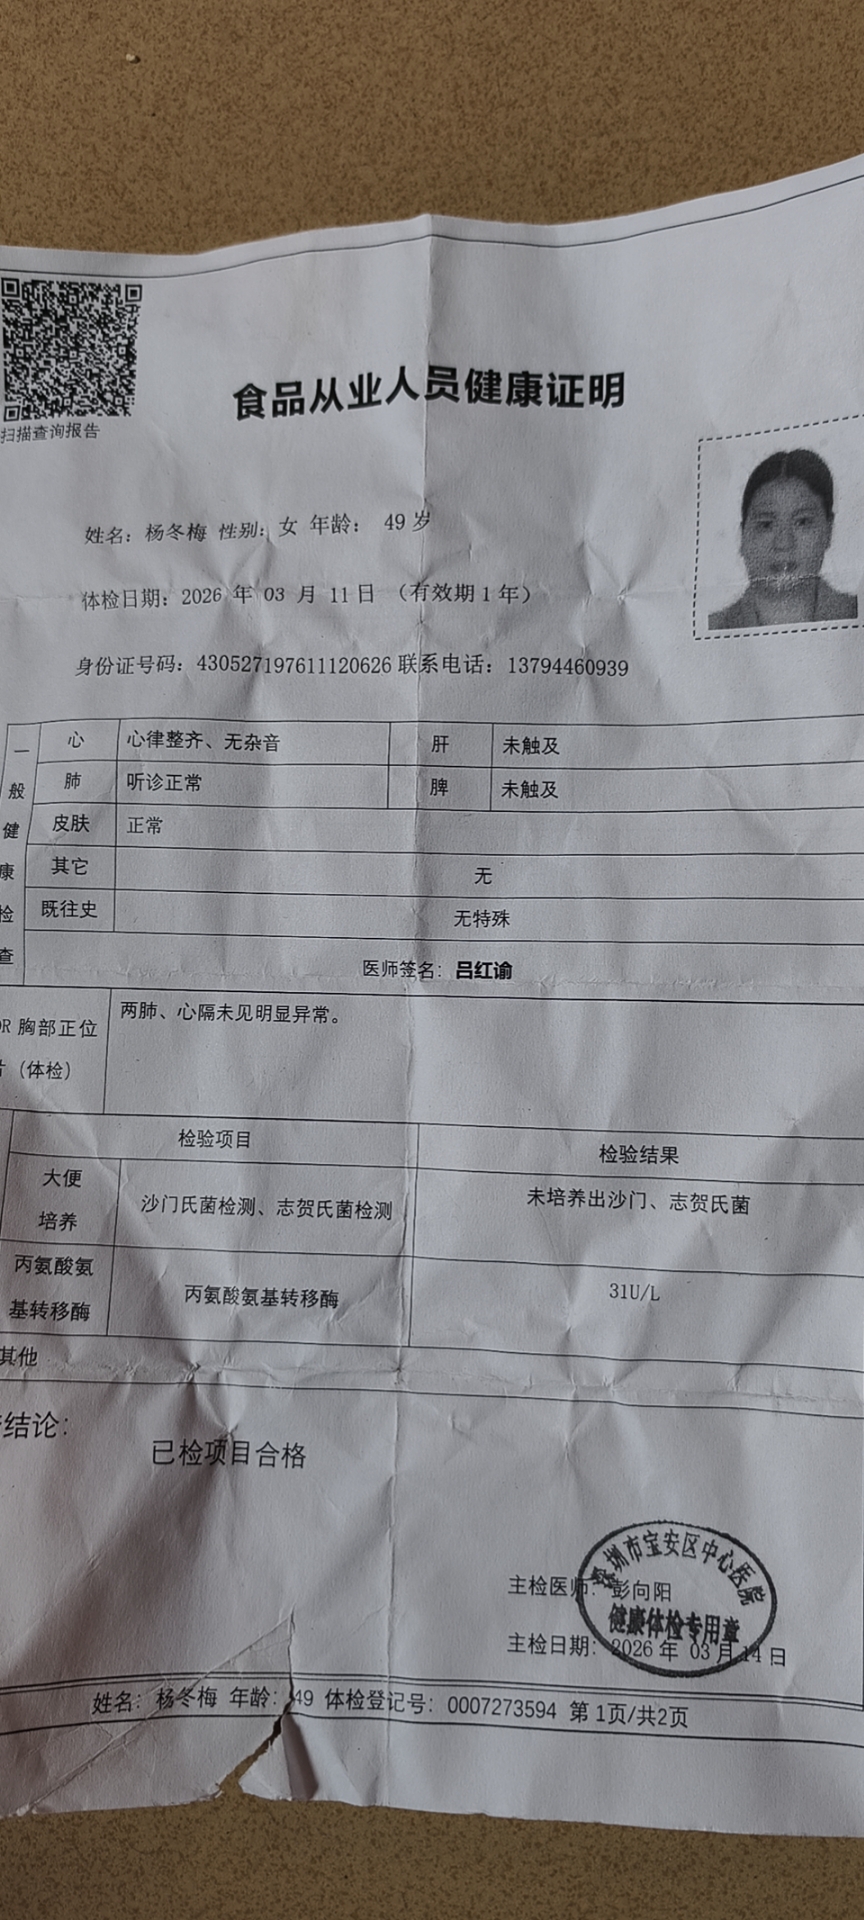 扫描查询报告
食品从业人员健康证明
姓名：杨冬梅 性别：女 年龄： 49 岁
体检日期：2026 年 03 月 11 日 （有效期 1 年）
身份证号码：430527197611120626 联系电话：13794460939
一般健康检查
心 心律整齐、无杂音 肝 未触及
肺 听诊正常 脾 未触及
皮肤 正常
其它 无
既往史 无特殊
医师签名：吕红谕
DR 胸部正位 两肺、心隔未见明显异常。
（体检）
检验项目 检验结果
大便
培养 沙门氏菌检测、志贺氏菌检测 未培养出沙门、志贺氏菌
丙氨酸氨
基转移酶 丙氨酸氨基转移酶 31U/L
其他
结论：
已检项目合格
深圳市宝安区中心医院
健康体检专用章
主检医师：彭向阳
主检日期：2026 年 03 月 14 日
姓名：杨冬梅 年龄：49 体检登记号：0007273594 第 1页/共2页